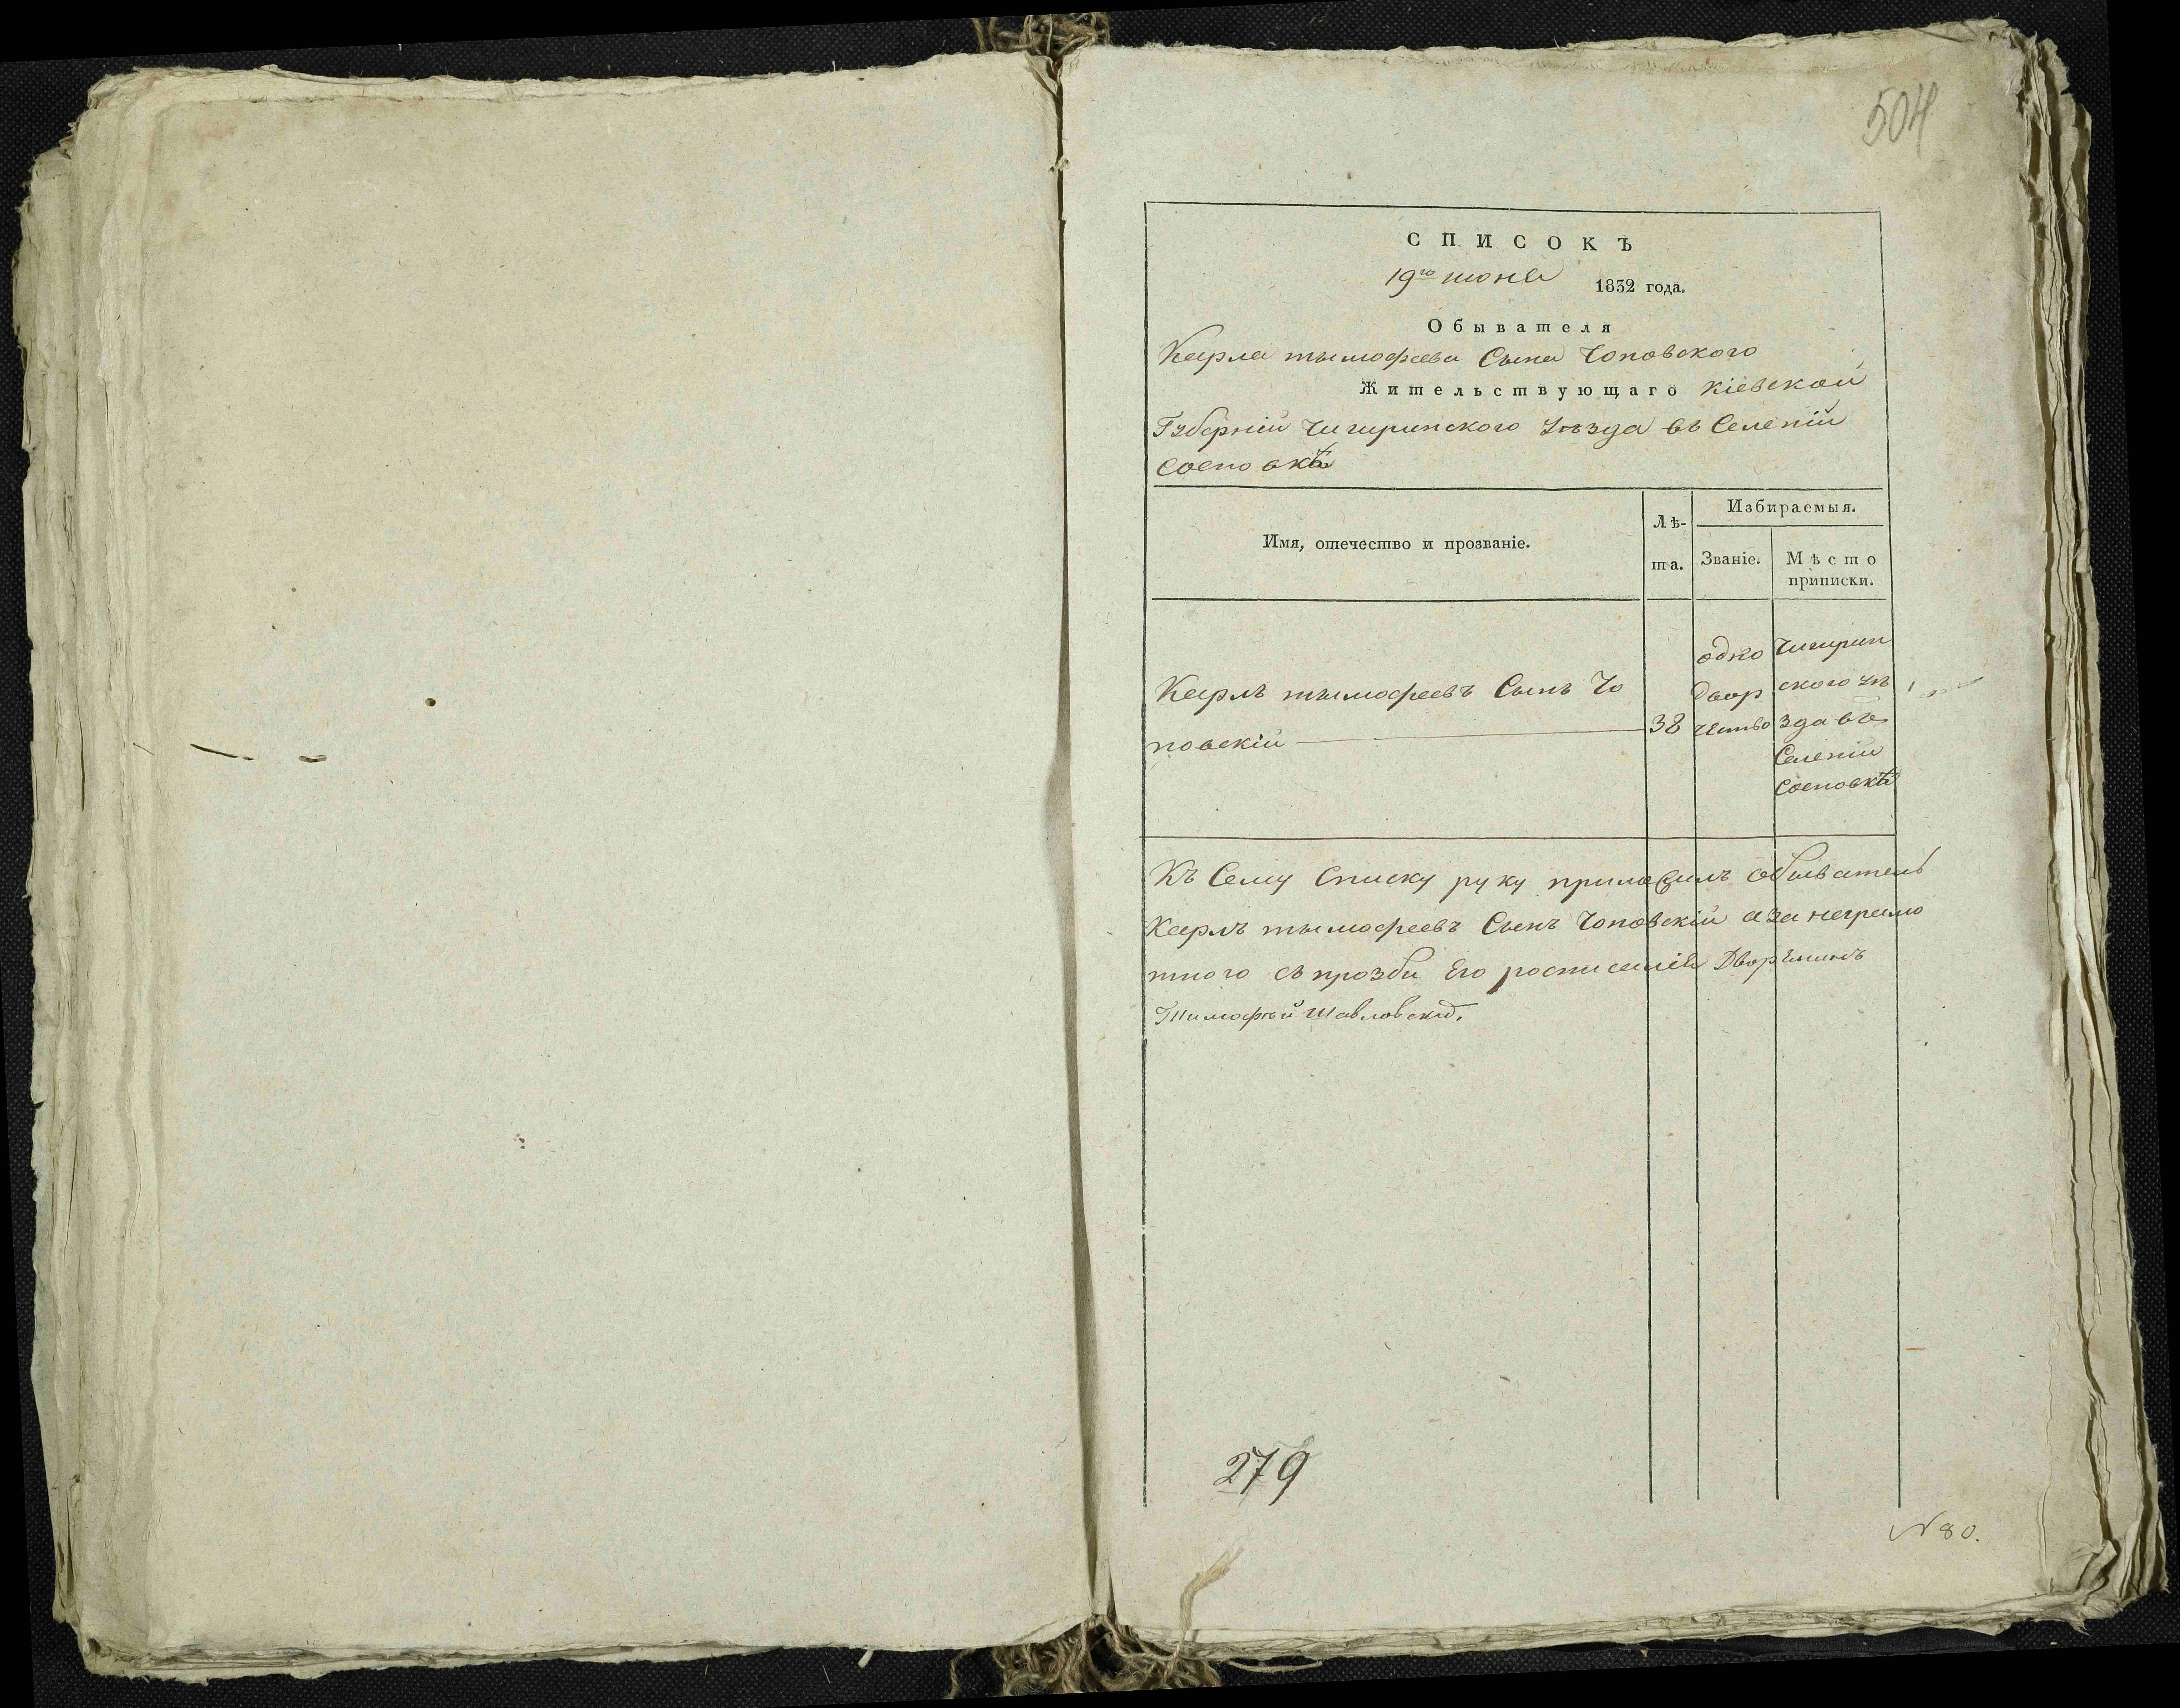 504
СПИСОКЪ
19го июня 1832 года.
Обывателя
Карла тымофеева Сына Чоповского
Жительствующаго Кіевской
Губерніи Чигиринского Уѣзда въ Селеніи
Сосновкѣ
Имя, отечество и прозваніе.
Лѣта.
Избираемыя.
Званіе.
Мѣсто приписки.
Карлъ тымофеевъ Сынъ Чо
повскій
38
одно
двор
чество
Чигирин
ского уѣ
зда въ
Селеніи
Сосновкѣ
Къ Сему Списку руку приложилъ обыватель
Карлъ тымофеевъ Сынъ Чоповскій а за неграмо
тного съ прозби Его росписался Дворянинъ
Тимофѣй
279
N 80.